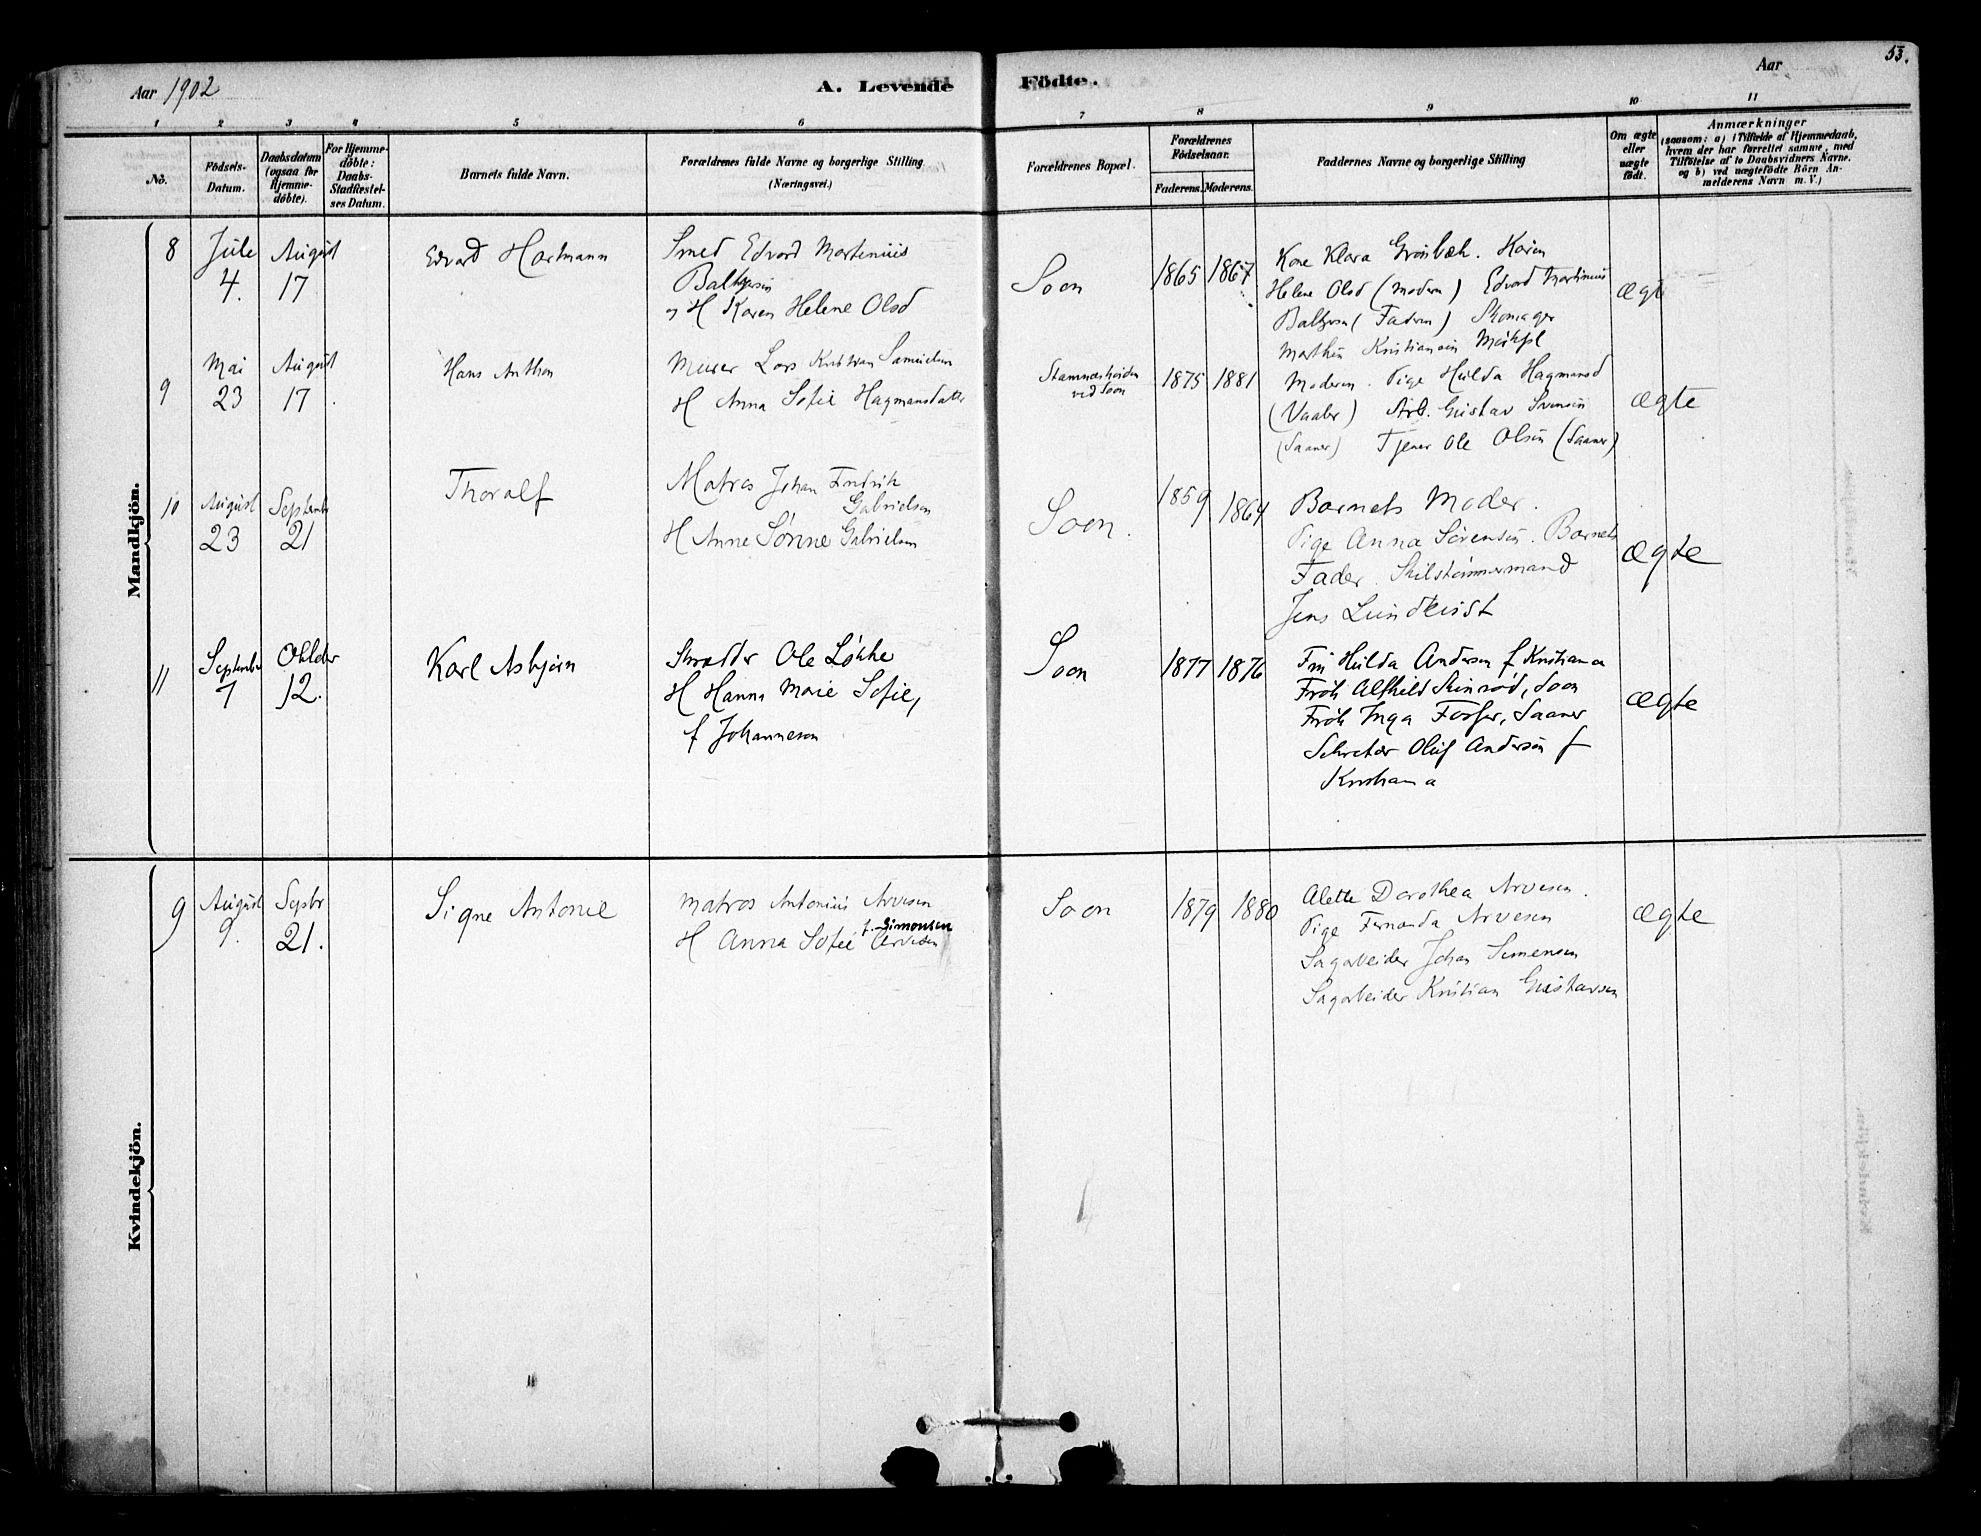 53.
Aar 1902
A. Levende Födte.
Aar
1 2 3 4 5 6 7 8 9 10 11
No.
Födsels-
Datum.
Daabsdatum
(ogsaa for
Hjemme-
døbte).
For Hjemme-
döbte:
Daabs-
Stadfæstel-
ses Datum.
Barnets fulde Navn.
Forældrenes fulde Navne og borgerlige Stilling
(Næringsvei.)
Forældrenes Bopæl.
Forældrenes
Födselsaar.
Faderens. Moderens.
Faddernes Navne og borgerlige Stilling
Om ægte
eller
uægte
födt.
Anmærkninger
(saasom: a) i Tilfælde af Hjemmedaab,
hvem der har forrettet samme, med
Tilföielse af to Daabsvidners Navne.
og b) ved uægtefödte Börn An-
melderens Navn m. V.)
Mandkjön.
8
Jule
4.
August
17
Edvard Hartmann
Smed Edvard Martinius
Baltzersen
og H Karen Helene Olsd
Soon
1865 1867
Kone Klara Grönbæk. Karen
Helene Olsd (Moderen) Edvard Martinius
Baltzersen (Faderen) Skomager
Marthin Kristiansen
ægte
9
Mai
23
August
17
Hans Anthon
Murer Lars Kristian Samuelsen
H Anna Sofie Hagmansdatter
Stamnæsheiden
ved Soon
1875 1881
Moderen. Pige Hulda Hagmansd
(Vaaler) Arb. Gustav Svensen
(Saaner) Tjener Ole Olsen (Saaner)
ægte
10
August
23
September
21
Thoralf
Matros Johan Fredrik
Gabrielsen
H Anne Sønne Gabrielsen
Soon.
1859 1864
Barnets Moder.
Pige Anna Sørensen. Barnets
Fader. Skibstømmermand
Jens Lundkvist
ægte
11
September
7
Oktober
12.
Karl Asbjørn
Skrædder Ole Løkke
H Hanna Marie Sofie,
f Johannesen
Soon
1877 1876
Fru Hulda Andersen f Kristiania
Frøk Alfhild Stenrød, Soon
Frøk Inga Fosser, Saaner
Sekretær Oluf Andersen f
Kristiania
ægte
Kvindekjön.
9
August
9.
Septbr
21.
Signe Antonie
Matros Antonius Arvesen
f. Simonsen
H Anna Sofie Arvesen
Soon
1879 1880
Alette Dorothea Arvesen.
Pige Fernanda Arvesen
Sagarbeider Johan Simensen
Sagarbeider Kristian Gustavsen
ægte